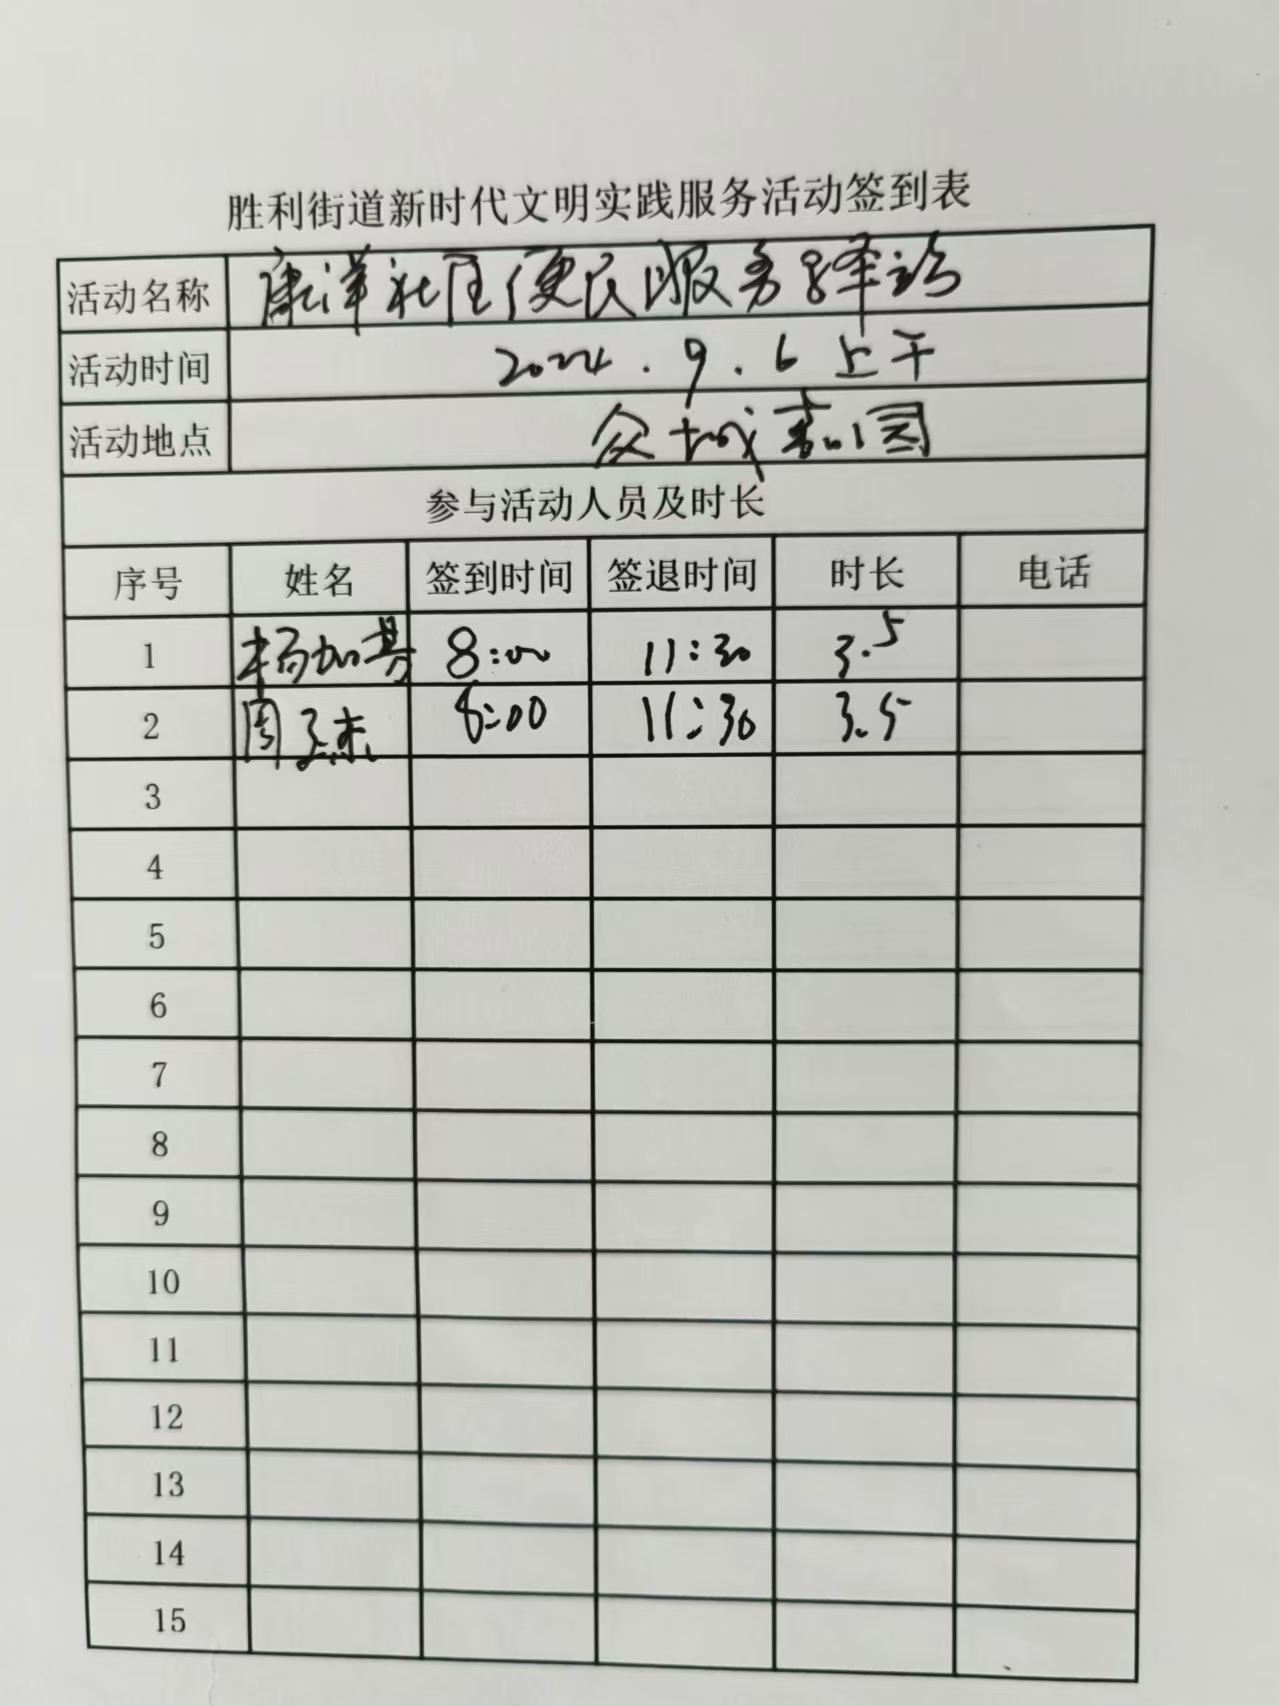 胜利街道新时代文明实践服务活动签到表
活动名称 康洋社区便民服务驿站
活动时间 2024.9.6 上午
活动地点 众城嘉园
参与活动人员及时长
序号 姓名 签到时间 签退时间 时长 电话
1 杨加 8:00 11:30 3.5
2 周 8:00 11:30 3.5
3
4
5
6
7
8
9
10
11
12
13
14
15